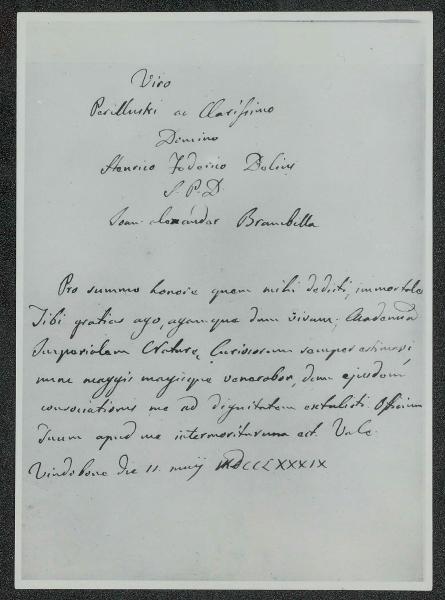 Viro
Perillustri ac Clarissimo
Domino
Henrico Foderico Delius
S. P. D.
Joan. Alexander Brambilla
Pro summo honore quem mihi dedisti, immortale
Tibi gratias ago, agamque dum vivam; Academiã
Imperialem Naturæ Curiosorum semper estimavi
nunc magis magisque venerabor, dum ejusdem
consociationis me ad dignitatem extulisti. Officium
Tuum apud me intermoriturum est. Vale.
Vindobone die 11. maij MDCCLXXXIX